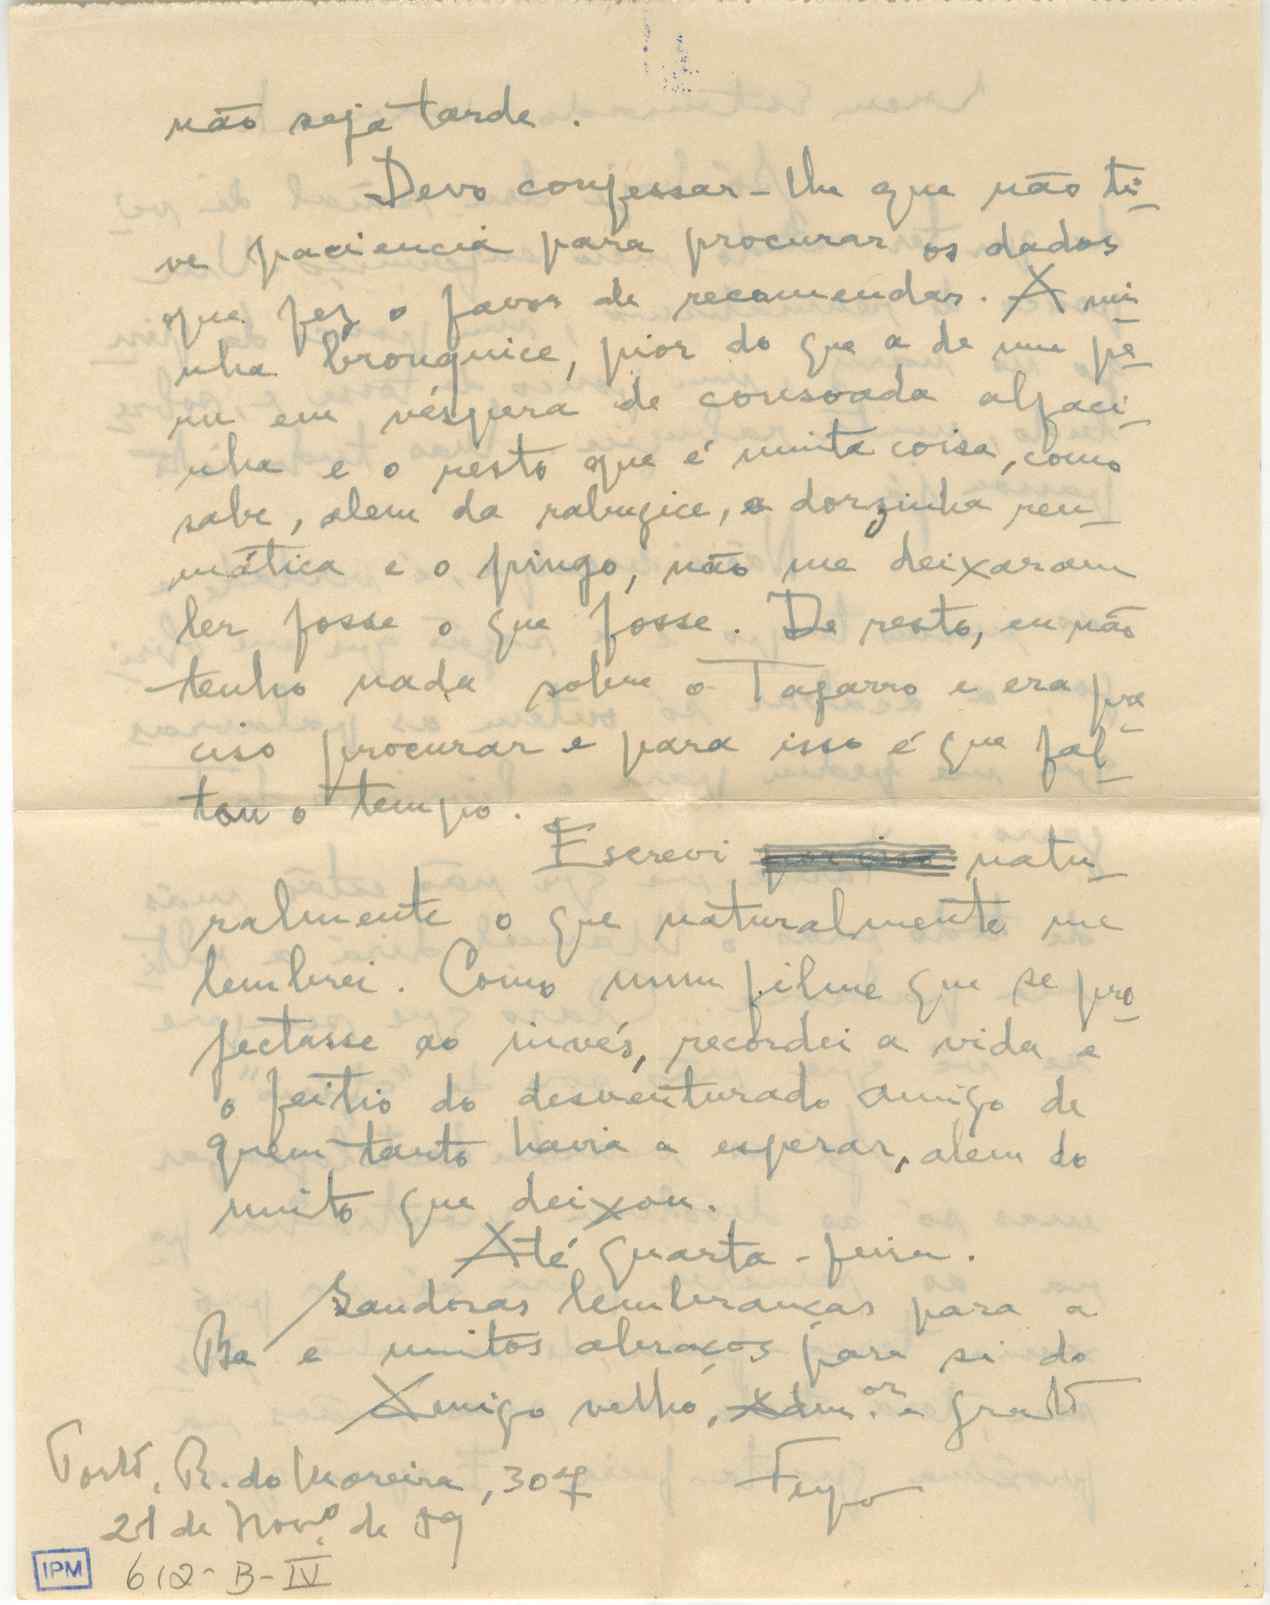 não seja tarde.
Devo confessar-lhe que não ti-
ve paciencia para procurar os dados
que fez o favor de recomendar. A mi-
nha bronquice, pior do que a de um pe-
ru em véspera de consoada alfaci-
nha e o resto que é muita coisa, como
sabe, alem da rabugice, a dorzinha reu-
mática e o pingo, não me deixaram
ler fosse o que fosse. De resto, eu não
tenho nada sobre o Tagarro e era pre-
ciso procurar e para isso é que fal-
tou o tempo.
Escrevi por isso natu-
ralmente o que naturalmente me
lembrei. Como num filme que se pro-
jectasse ao invés, recordei a vida e
o feitio do desventurado amigo de
quem tanto havia a esperar, alem do
muito que deixou.
Até quarta-feira.
Saudosas lembranças para a
Ba e muitos abraços para si do
Amigo velho, Adm.or e grato
Porto, R. do Moreira, 307
21 de Nov.o de
IPM 612-B-IV